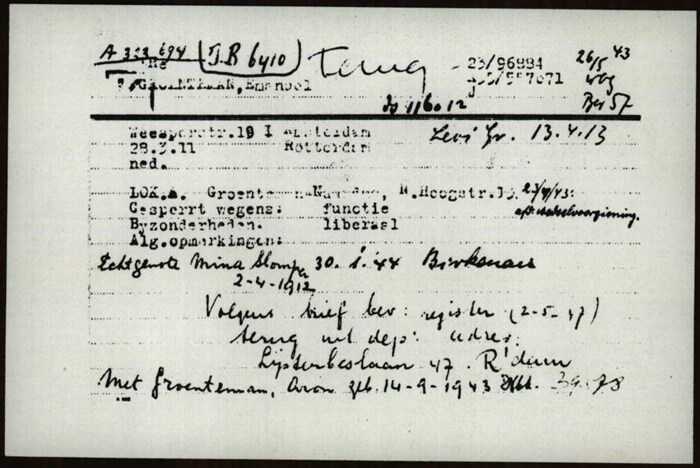 A 333 694 (J.R 6410) terug 23/96884 26/5 43
GROENTEMAN, Emanuel
Js 116012 Bev 57
Weesperstr.19 I Amsterdam Levi Gr. 13.4.13
28.3.11 Rotterdam
ned.
LOK.A. Groenteman N.Hoogstr.
Gesperrt wegens: functie
Byzonderheden: liberaal
Alg.opmerkingen:
Echtgenote Mina Slomp 30.1.44 Birkenau
2-4-1912
Volgens brief bev: register (2-5-47)
terug uit dep: adres
Lijsterbeslaan 47. R'dam
Met Groenteman, Aron geb. 14-9-1943